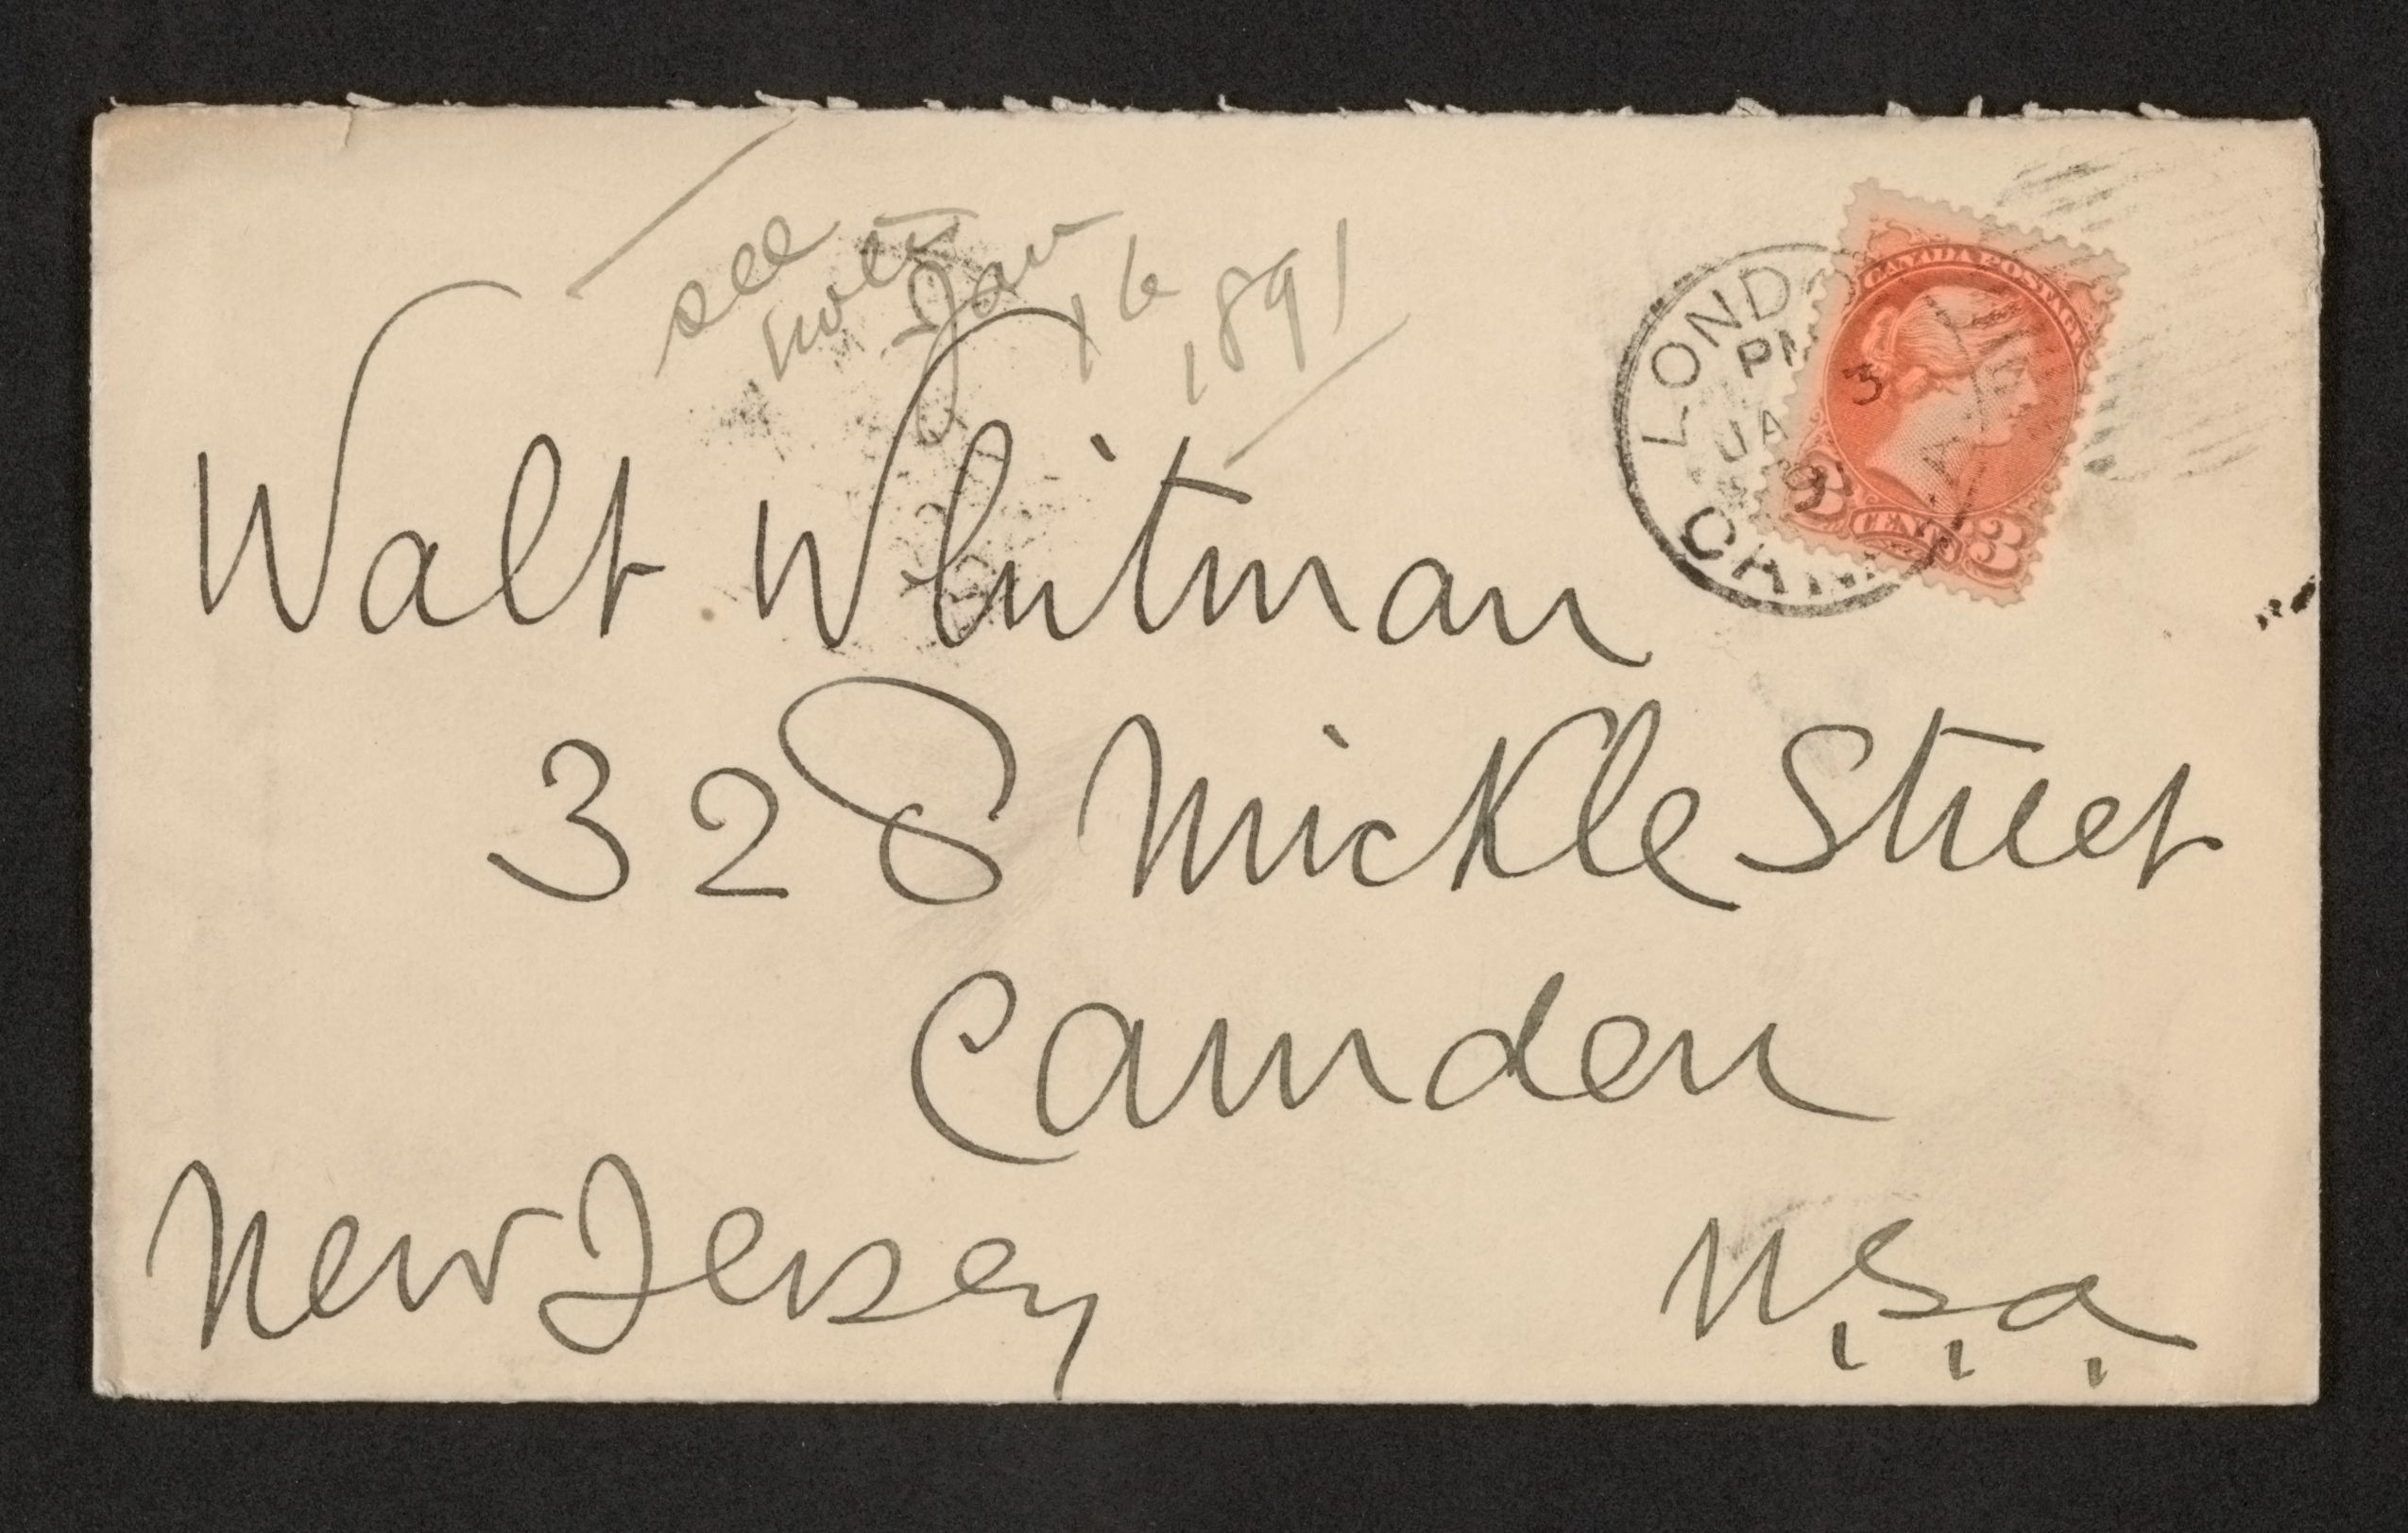 see
notes
Jan
16
1891
LONDO
PM
3
JA
9
CAN
CANADA POSTAGE
3 CENTS 3
Walt Whitman
328 Mickle Street
Camden
New Jersey
U.S.a.